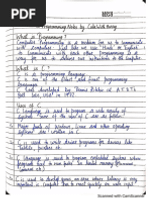 Programming Notes by CodeWithHarry
What is Programming?
Computer Programming is a medium for us to communicate
with computers. Just like we use Hindi or English
to communicate with each other, Programming is a
way for us to deliver our instructions to the computer.
What is C?
C is a programming language.
C is one of the oldest and finest programming
languages.
C was developed by Dennis Ritchie at AT&T's
Lab, USA in 1972.
Uses of C
C language is used to program a wide variety of
systems. Some of the uses of C are as follows:
Major parts of Windows, Linux and other operating
systems are written in C.
C is used to write driver programs for devices
like Tablets, Printers etc.
C language is used to program embedded systems where
programs need to run faster in limited memory
C is used to develop games, an area where latency
is very important i.e. Computer has to react quickly on user input.
Scanned with CamScanner